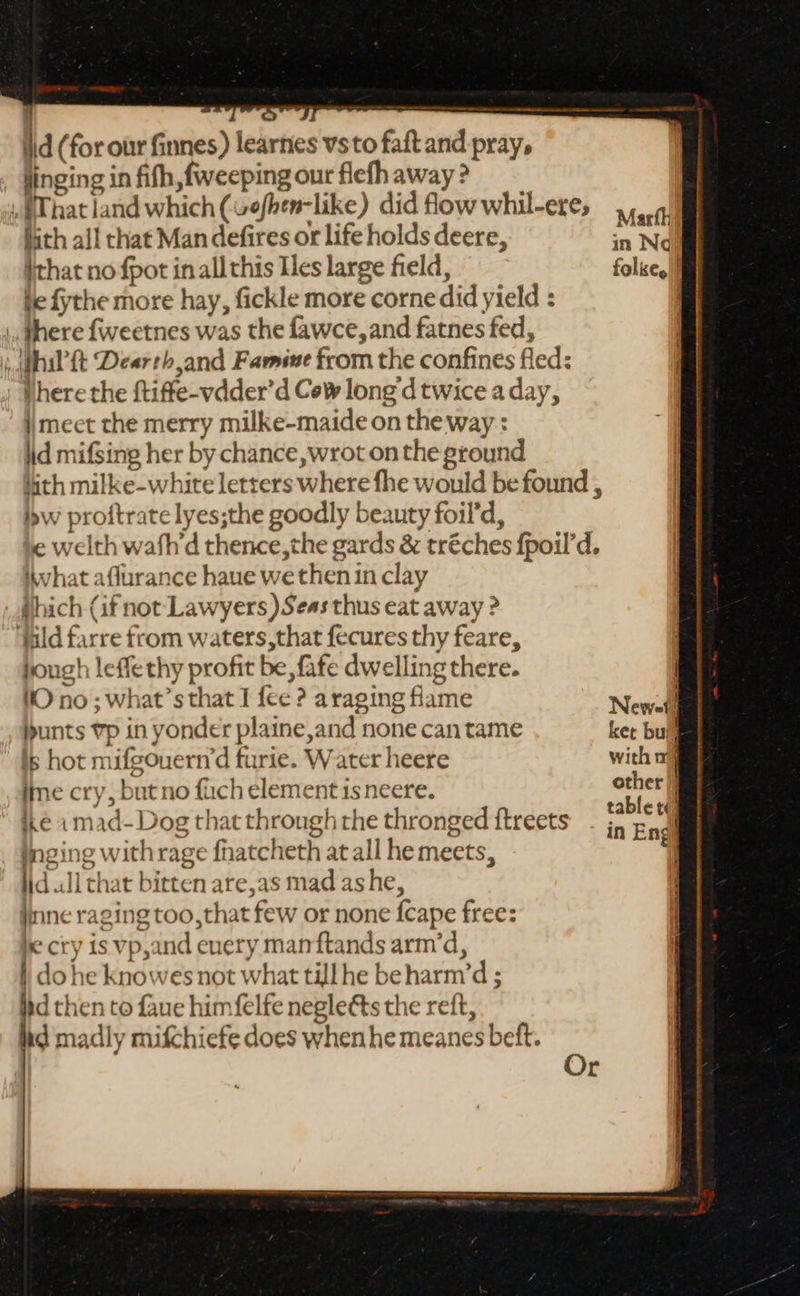 d (for our ſinnes) learnes vs to faſt and pray,
inging in fiſh, ſweeping our fleſh away?
That land which (Goſhen-like) did flow whil-eres
ith all that Man deſires or life holds deere,
that no ſpot in all this Iles large field,
e ſythe more hay, ſickle more corne did yield :
here ſweetnes was the ſawce, and fatnes fed,
hil'ſt Dearth, and Famine from the confines fled:
here the ſtiffe-vdder'd Cow long'd twice a day,
meet the merry milke-maide on the way :
d miſsing her by chance, wrot on the ground
ith milke-white letters where ſhe would be found,
ow proſtrate lyes; the goodly beauty foil'd,
e welth waſh'd thence, the gards & trēches ſpoil'd.
what aſſurance haue we then in clay
hich (if not Lawyers) Seas thus eat away ?
ild farre from waters, that ſecures thy feare,
ough leſſe thy profit be, ſafe dwelling there.
O no ; what's that I ſee ? a raging flame
ounts vp in yonder plaine, and none can tame
s hot miſgouern'd furie. Water heere
me cry, but no ſuch element is neere.
ke a mad-Dog that through the thronged ſtreets
nging with rage ſnatcheth at all he meets,
d all that bitten are, as mad as he,
nne raging too, that few or none ſcape free:
e cry is vp, and euery man ſtands arm'd,
do he knowes not what till he be harm'd ;
nd then to ſaue himſelfe neglects the reſt,
nd madly miſchiefe does when he meanes beſt.
Or
Marſh
in No
folke.
New
ket bu
with
other
table
in Eng